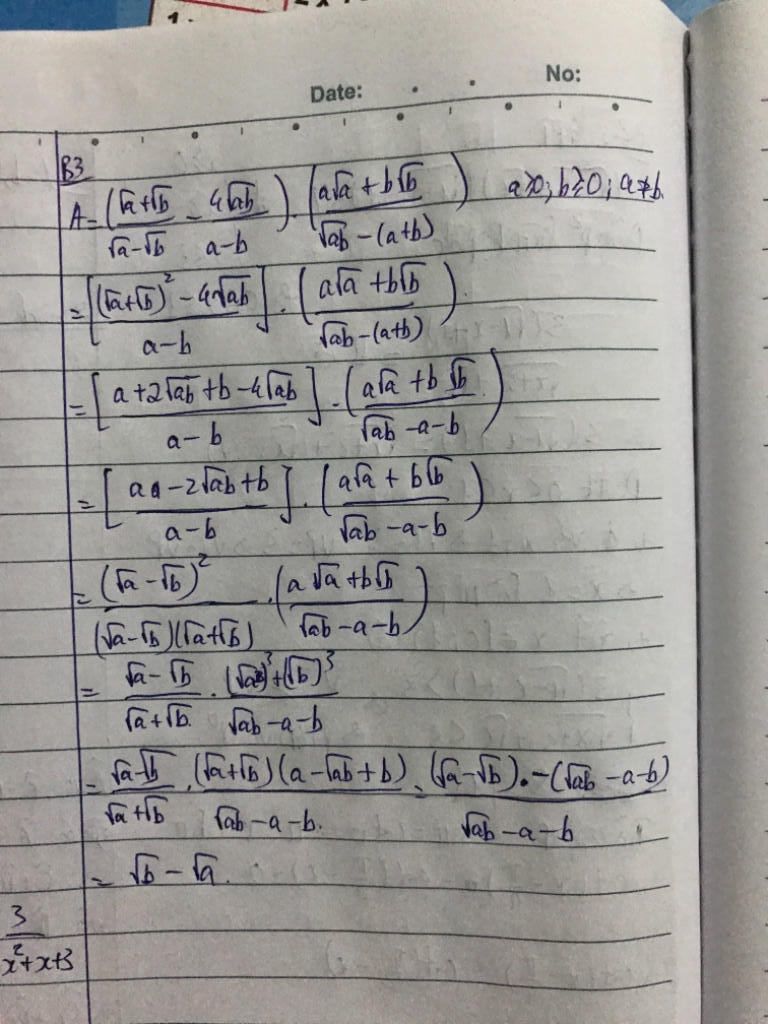 1.
Date: No:
B3
A = (√a+√b / √a-√b - 4√ab / a-b) . (a√a + b√b / √ab - (a+b)) a≥0; b≥0; a≠b.
= [(√a+√b)² - 4√ab / a-b] . (a√a + b√b / √ab - (a+b)).
= [a + 2√ab + b - 4√ab / a-b] . (a√a + b√b / √ab - a - b)
= [a - 2√ab + b / a-b] . (a√a + b√b / √ab - a - b)
= (√a - √b)² / (√a - √b)(√a+√b) . (a√a + b√b / √ab - a - b)
= √a - √b / √a + √b . (√a)³ + (√b)³ / √ab - a - b
= √a - √b / √a + √b . (√a+√b)(a - √ab + b) / √ab - a - b. = (√a - √b) . -(√ab - a - b) / √ab - a - b
= √b - √a.
3 / x² + x + 3